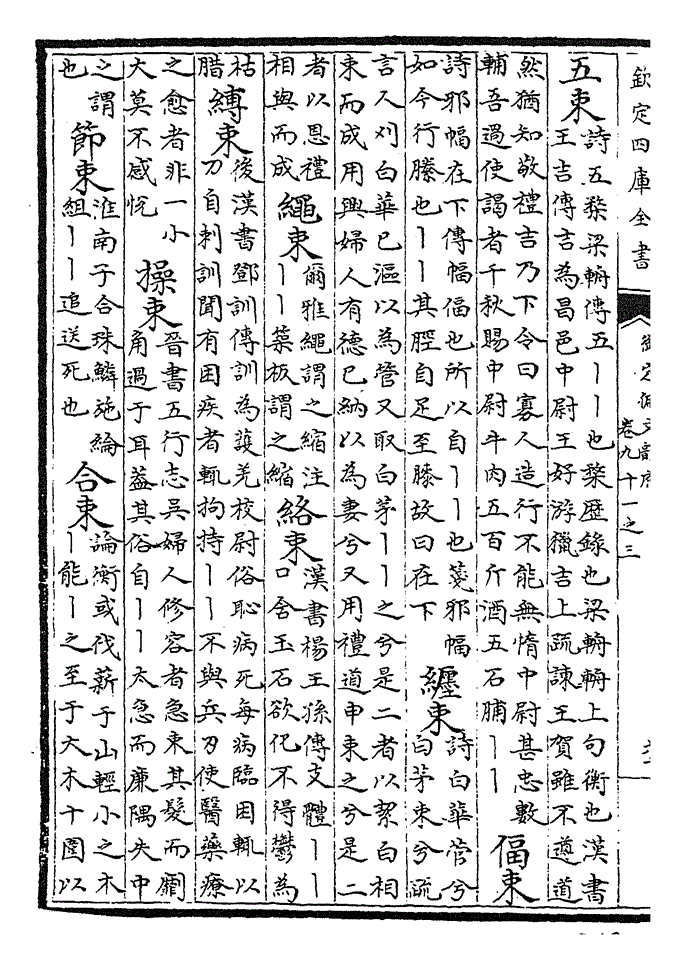 欽定四庫全書
御定佩文韻府
卷九十一之三
五束
詩五楘梁輈傳五丨丨也楘歷錄也梁輈輈上句衡也漢書
王吉傳吉為昌邑中尉王好游獵吉上疏諫王賀雖不遵道
然猶知敬禮吉乃下令曰寡人造行不能無惰中尉甚忠數
輔吾過使謁者千秋賜中尉牛肉五百斤酒五石脯丨丨
偪束
詩邪幅在下傳幅偪也所以自丨丨也箋邪幅
如今行縢也丨丨其脛自足至膝故曰在下
纏束
詩白華菅兮
白茅束兮疏
言人刈白華已漚以為菅又取白茅丨丨之兮是二者以絜白相
束而成用興婦人有德已納以為妻兮又用禮道申束之兮是二
者以恩禮
相與而成
繩束
爾雅繩謂之縮注
丨丨築板謂之縮
絡束
漢書楊王孫傳支體丨丨
口含玉石欲化不得鬱為
枯
腊
縛束
後漢書鄧訓傳訓為護羌校尉俗恥病死每病臨困輒以
刀自刺訓聞有困疾者輒拘持丨丨不與兵刃使醫藥療
之愈者非一小
大莫不感悅
操束
晉書五行志吳婦人修容者急束其髮而劘
角過于耳蓋其俗自丨丨太急而廉隅失中
之謂
也
節束
淮南子合珠鱗施綸
組丨丨追送死也
合束
論衡或伐薪于山輕小之木
丨能丨之至于大木十圍以